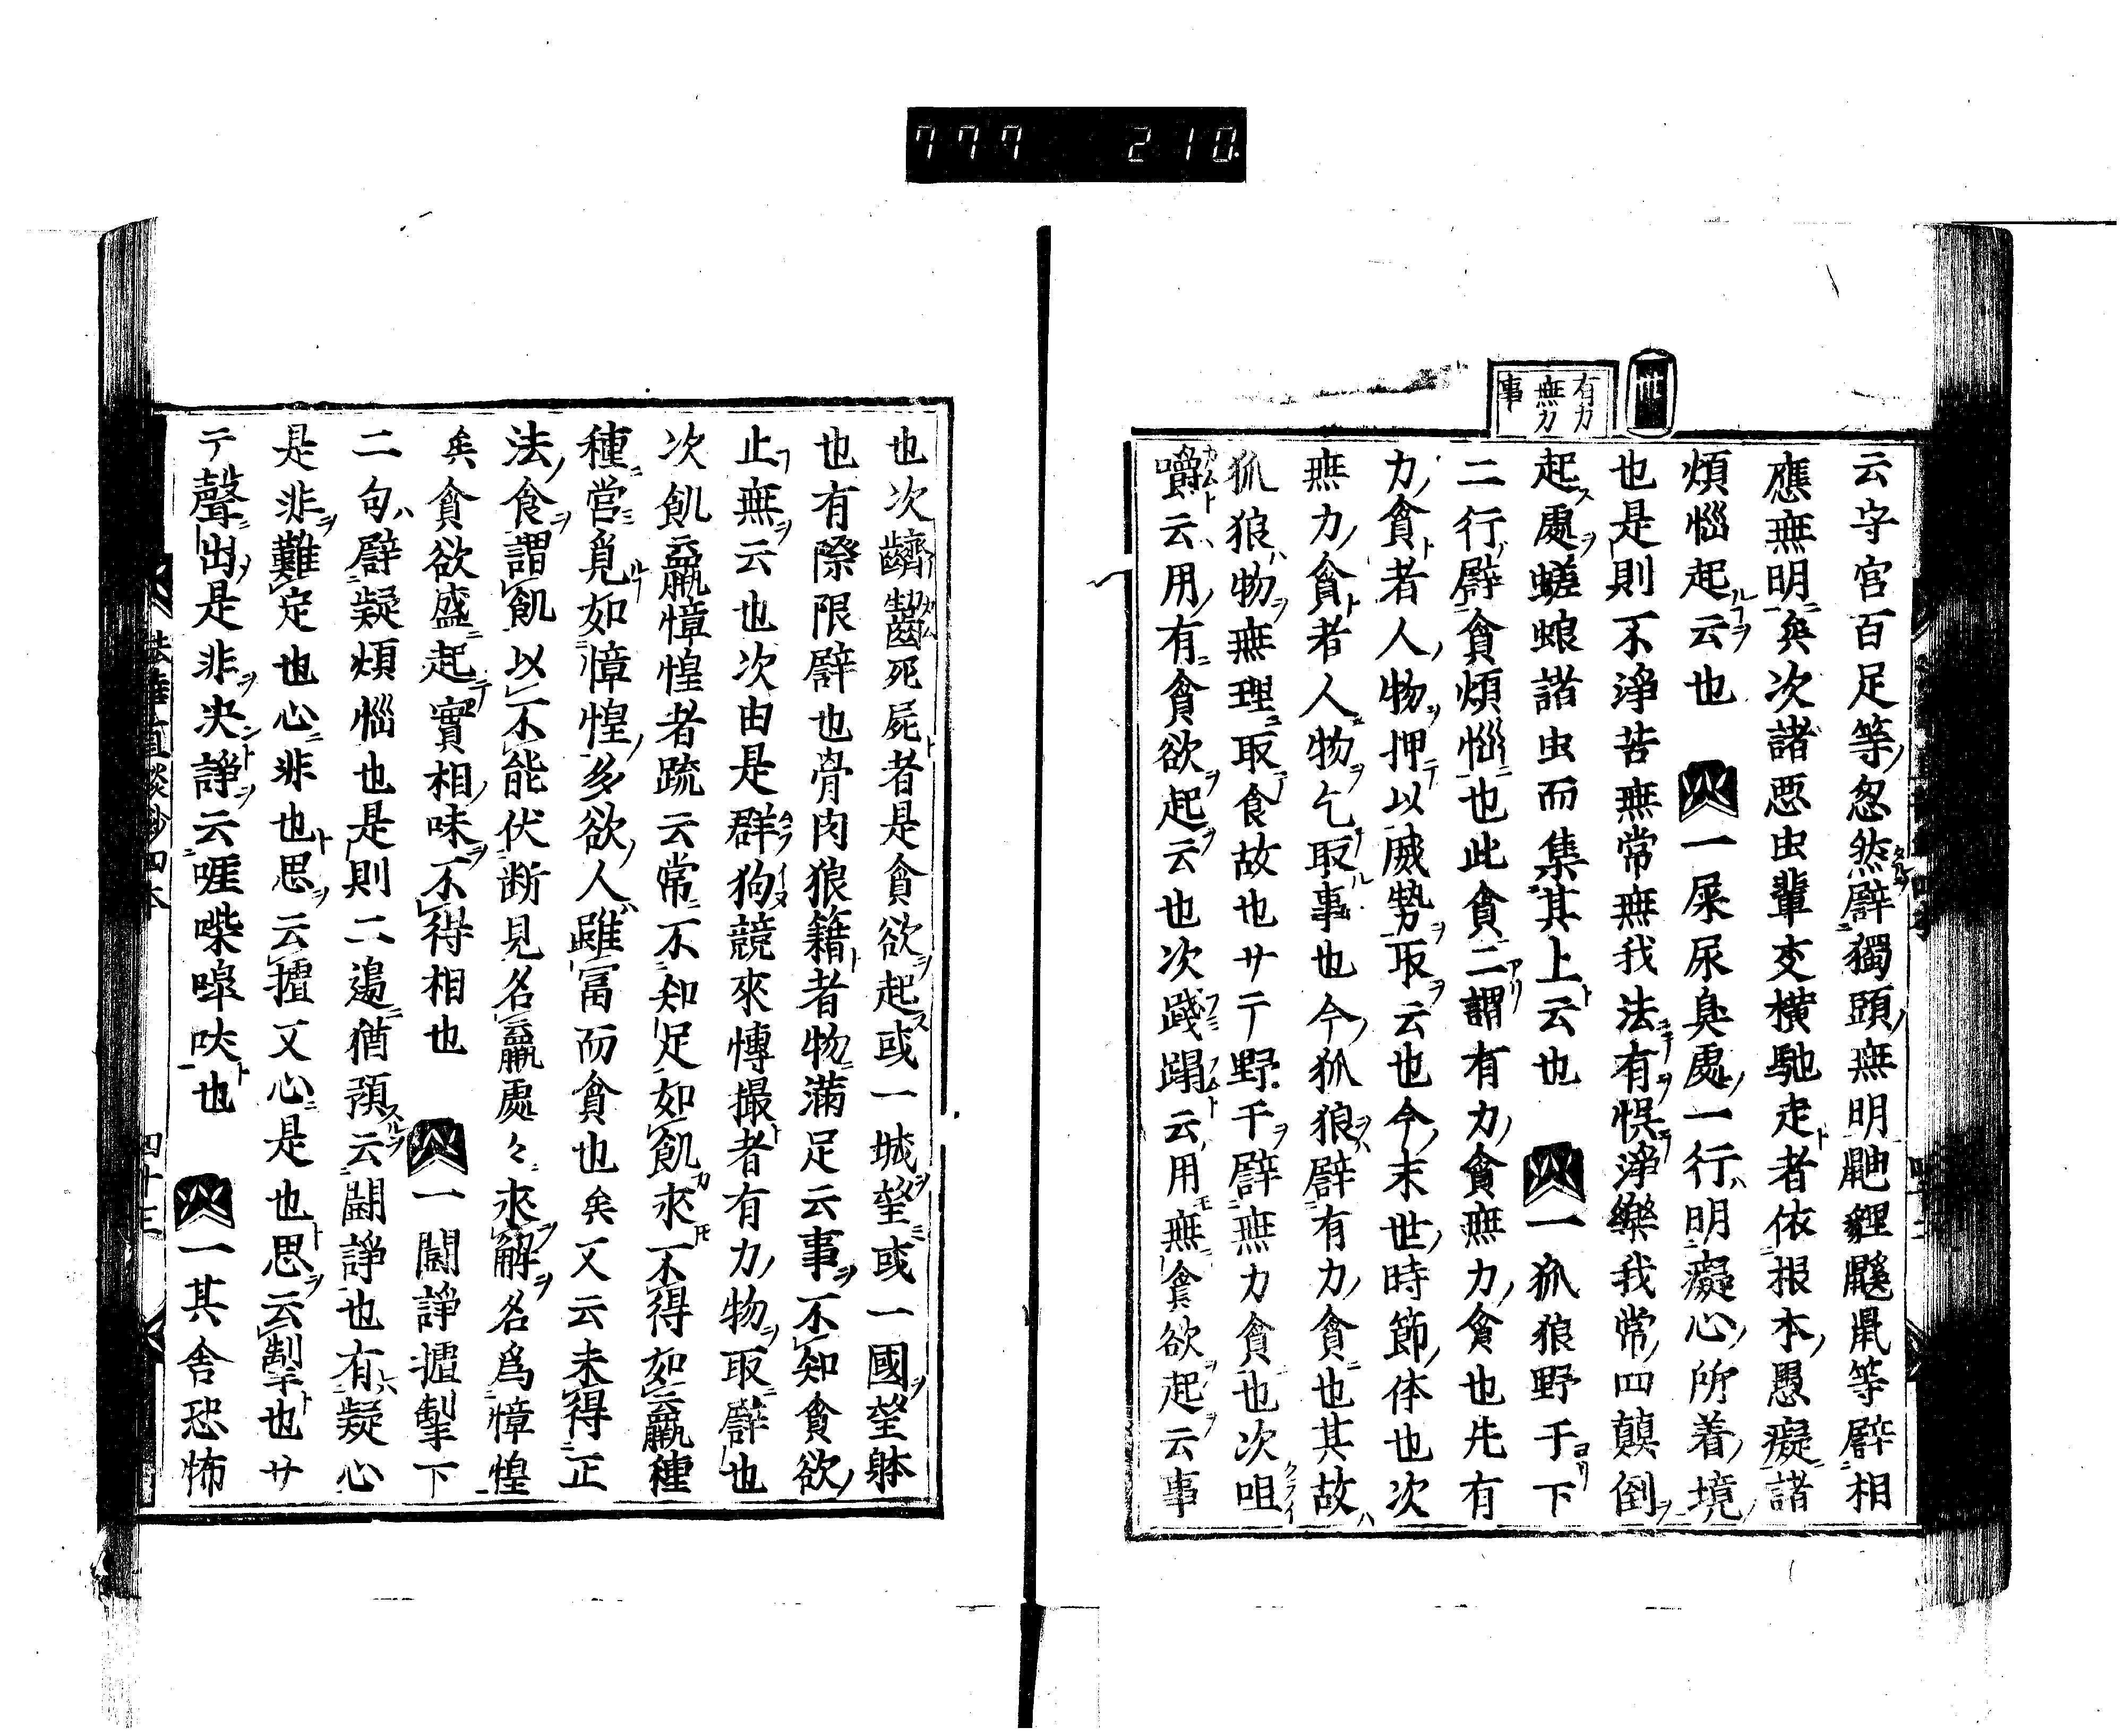 777 210.
有力
無力
事
云守宮百足等忽然譬獨頭無明鼬貍鼷鼠等譬相
應無明矣次諸悪虫輩交横馳走者依根本愚癡諸
煩惱起云也 一屎尿臭處一行明癡心所着境
也是則不淨苦無常無我法有悞淨樂我常四顛倒
起處蜣蜋諸虫而集其上云也 一狐狼野干下
二行譬貪煩惱也此貪二謂有力貪無力貪也先有
力貪者人物押以威勢取云也今末世時節体也次
無力貪者人物乞取事也今狐狼譬有力貪也其故
狐狼物無理取食故也サテ野干譬無力貪也次咀
嚼云用有貪欲起云也次踐蹋云用無貪欲起云事
也次嚌齧死屍者是貪欲起或一城望或一國望躰
也有際限譬也骨肉狼籍者物満足云事不知貪欲
止無云也次由是群狗競來慱撮者有力物取譬也
次飢羸慞惶者疏云常不知足如飢來不得如羸種
種営覓如慞惶多欲人雖冨而貪也矣又云未得正
法食謂飢以不能伏断見名羸處々求解名為慞惶
矣貪欲盛起實相味不得相也 一闘諍摣掣下
二句譬疑煩惱也是則二邉猶預云闘諍也有疑心
是非難定也心非也思云摣又心是也思云掣也サ
テ聲出是非决諍云嘊喍嘷吠也 一其舎恐怖
四十三